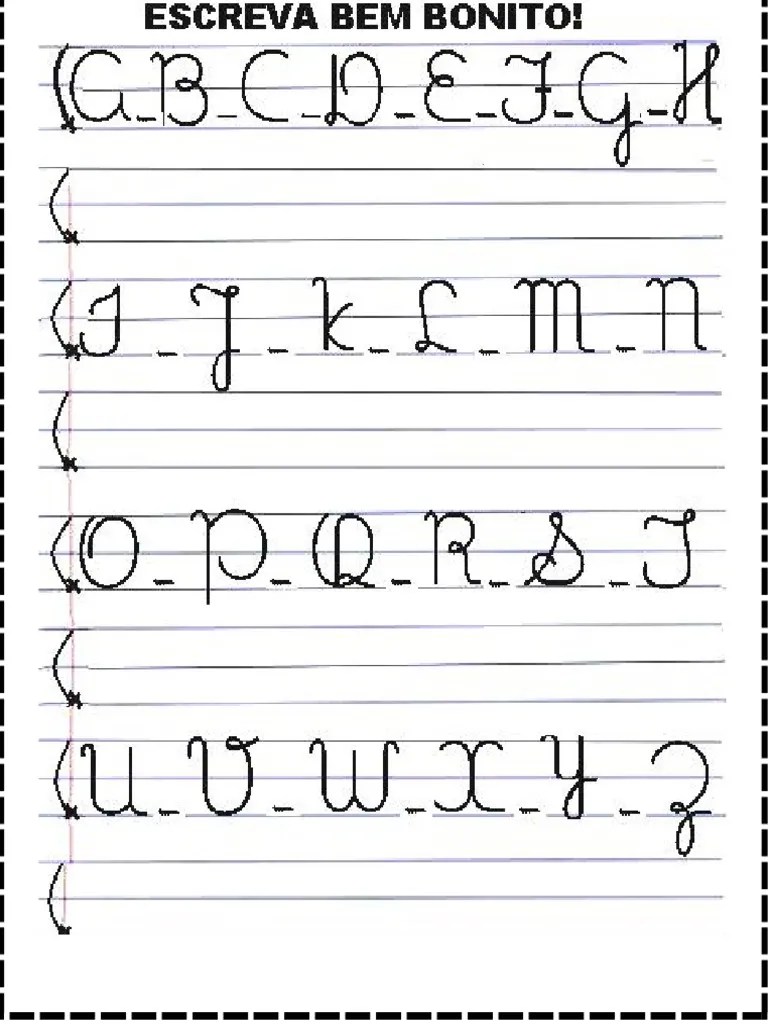 ESCREVA BEM BONITO!
A-B-C-D-E-F-G-H
I - J - K - L - M - N
O - P - Q - R - S - T
U - V - W - X - Y - Z